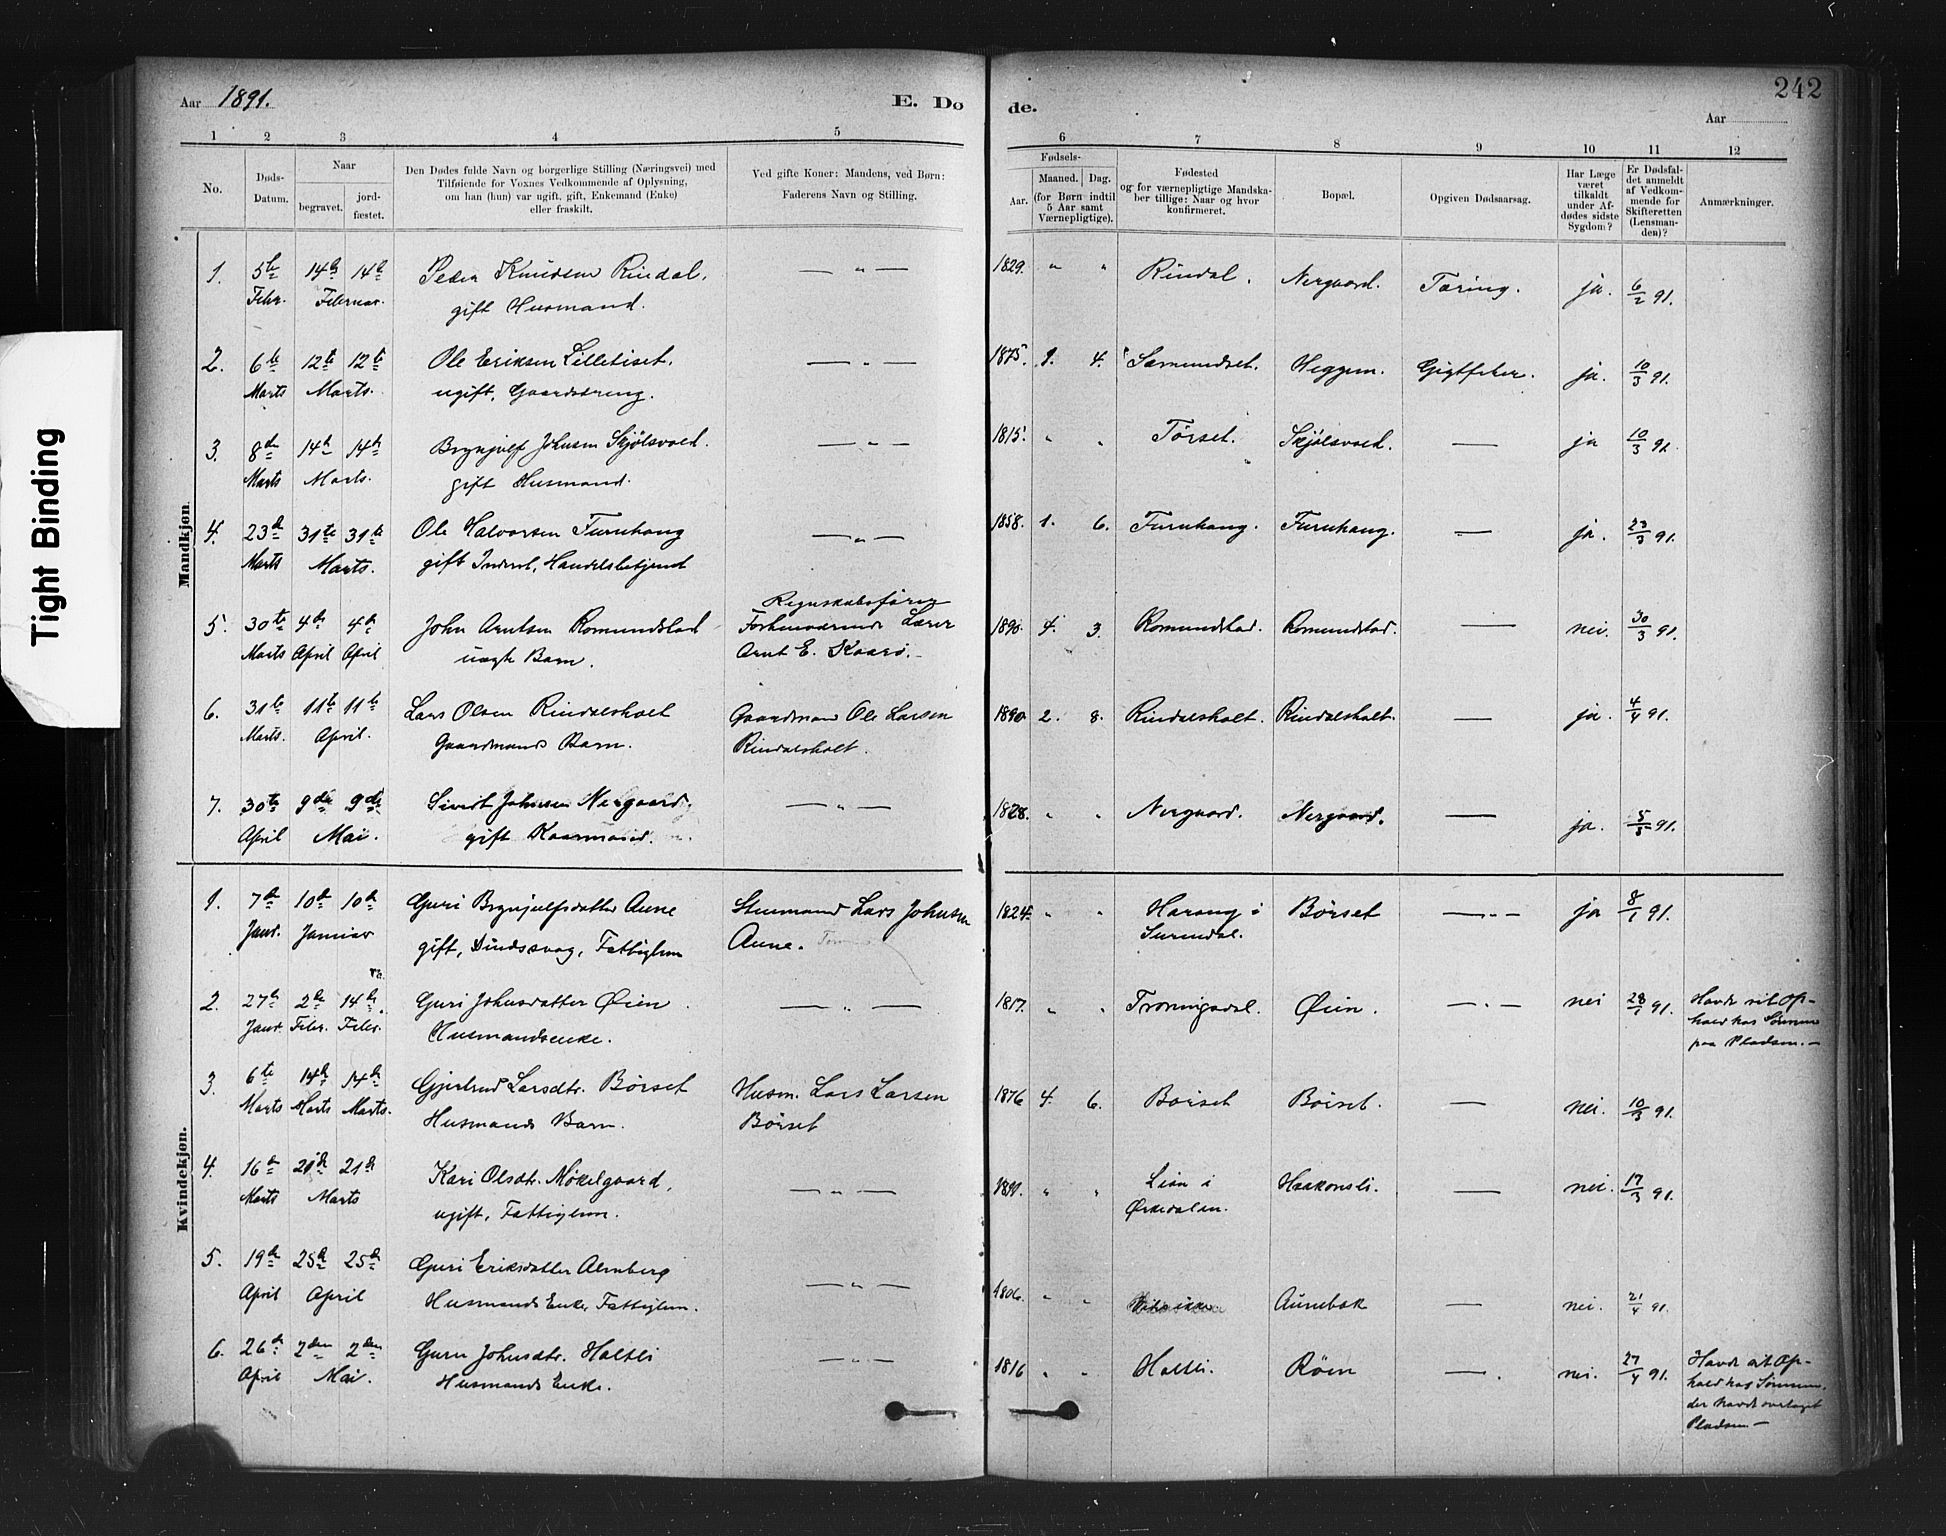 Aar 1891.
E. Døde.
242
Aar
1 2 3 4 5 6 7 8 9 10 11 12
No.
Døds-Datum.
Naar
begravet.
jord-fæstet.
Den Dødes fulde Navn og borgerlige Stilling (Næringsvei) med
Tilføiende for Voxnes Vedkommende af Oplysning,
om han (hun) var ugift, gift, Enkemand (Enke)
eller fraskilt.
Ved gifte Koner: Mandens, ved Børn:
Faderens Navn og Stilling.
Fødsels-
Aar.
Maaned. Dag.
(for Børn indtil
5 Aar samt
Værnepligtige).
Fødested
og for værnepligtige Mandska-
ber tillige: Naar og hvor
konfirmeret.
Bopæl.
Opgiven Dødsaarsag.
Har Læge
været
tilkaldt
under Af-
dødes sidste
Sygdom?
Er Dødsfal-
det anmeldt
af Vedkom-
mende for
Skifteretten
(Lensman-
den)?
Anmærkninger.
Tight Binding
Mandkjøn.
1. 5te 14de 14de Peder Knudsen Rindal, — " — 1829. " " Rindal. Nergaard. Tæring. ja. 6/2 91.
Febr. Februar. gift Husmand.
2. 6te 12te 12te Ole Eriksen Lilletiset, — " — 1875. 9. 4. Sæmundset. Heggem. Gigtfeber. ja. 10/3 91.
Marts Marts. ugift, Gaardsdreng.
3. 8de 14de 14de Brynjulf Johnsen Skjølsvold. — " — 1815. " " Tørset. Skjølsvold. — ja 10/3 91.
Marts Marts. gift Husmand.
4. 23de 31te 31te Ole Halvorsen Furuhaug — " — 1858. 1. 6. Furuhaug. Furuhaug. — ja. 23/3 91.
Marts Marts. gift Inderst, Handelsbetjent
Regnskabsfører
5. 30te 4de 4de John Arntsen Romundstad Forhenværende Lærer 1890. 4. 3. Romundstad. Romundstad. — nei. 30/3 91.
Marts April April uægte Barn. Arnt E. Kaarø.
6. 31te 11te 11te Lars Olsen Rindalsholt Gaardmand Ole Larsen 1890. 2. 8. Rindalsholt. Rindalsholt. — ja. 4/4 91.
Marts. April. Gaardmands Barn. Rindalsholt.
7. 30te 9de 9de Sivert Johnsen Nergaard, — " — 1828. " " Nergaard. Nergaard. — ja. 5/5 91.
April Mai. gift Kaarmand.
Kvindekjøn.
1. 7de 10de 10de Guri Brynjulfsdatter Aune Stuemand Lars Johnsen 1824. " " Harang i Børset — " — ja 8/1 91.
Janr. Januar gift, Sindssvag, Fattiglem Aune. Surendal.
2. 27de 2de 14de Guri Johnsdatter Øien — " — 1817. " " Troningsdal. Øien. — " — nei 28/1 91. Havde sit Op-
Janr. Febr. Febr. Husmandsenke. hold hos Sønnen
paa Pladsen. —
3. 6te 14de 14de Gjertrud Larsdtr. Børset Husm. Lars Larsen 1876 4. 6. Børset Børset. — nei. 10/3 91.
Marts Marts Marts. Husmands Barn. Børset
4. 16de 21de 21de Kari Olsdtr. Møkelgaard, — " — " " Lian i Haakonsli. — nei. 17/3 91.
Marts Marts ugift, Fattiglem. Ørkedalen.
5. 19de 25de 25de Guri Eriksdatter Almberg — " — 1806. " " Aunebak — nei. 21/4 91.
April April Husmands Enke, Fattiglem.
6. 26de 2den 2den Guru Johnsdtr. Holtli — " — 1816 " " Holtli. Røen — nei. 27/4 91. Havde sit Op-
April Mai. Husmands Enke. hold hos Sønnen,
der havde overtaget
Pladsen —